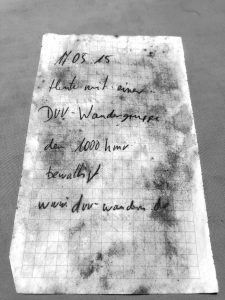 17.05.15
Heute mit einer
DVV-Wandergruppe
den 1000 hmr
bewältigt
www.dvv-wandern.de